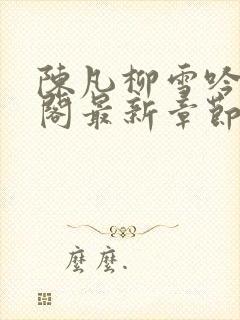 陳凡柳雪吟
閣最新章節
麼麼.